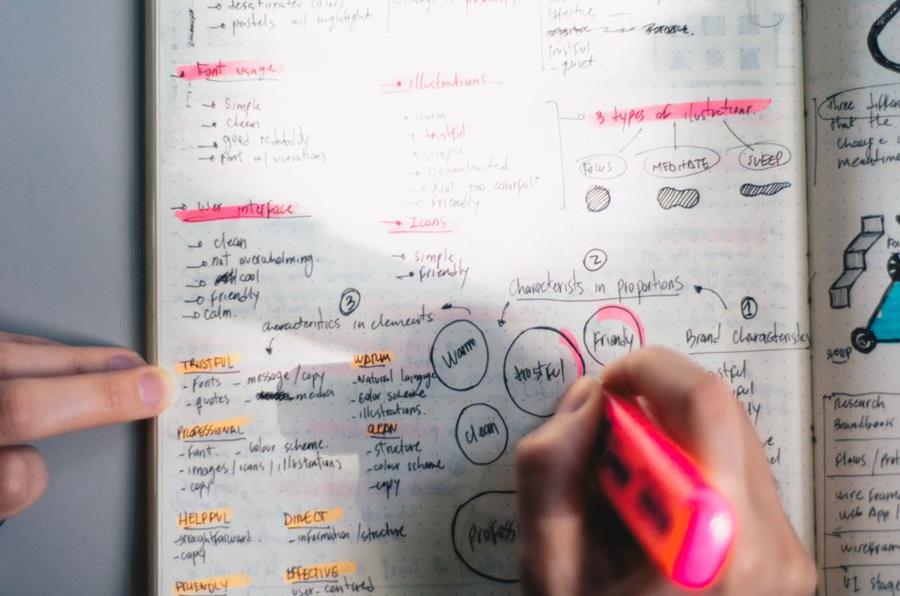 desaturated colors
pastels w/ hightlight
Effective
trustful
- quiet.
Font usage
Simple
clean
good readability
Font w/ variations
illustrations
warm
trustful
Simple
Not too colorful
Friendly
3 types of ilustrations.
FOCUS
MEDITATE
SLEEP
User interface
clean
not overwhelming
cool
friendly
calm.
Icons
Simple
Friendly
2
Characterists in proportions
1
Brand characteristics
3
characteristics in elements
Warm
trustful
Friendly
clean
TRUSTFUL
- Fonts
- message / copy
- quotes
- media
WARM
- Natural language
- color scheme
- illustrations.
PROFESSIONAL
- Font
- colour scheme.
- images / icons / illustrations
- copy
CLEAN
- structure
- colour scheme
- copy
HELPFUL
- straightforward
- copy
DIRECT
- information / structure
FRIENDLY
EFFECTIVE
user-centered
Three
that the
change
meantime
SLEEP
Research
Brandbook
Flows /
wire
Web App /
wirefram
UI stage